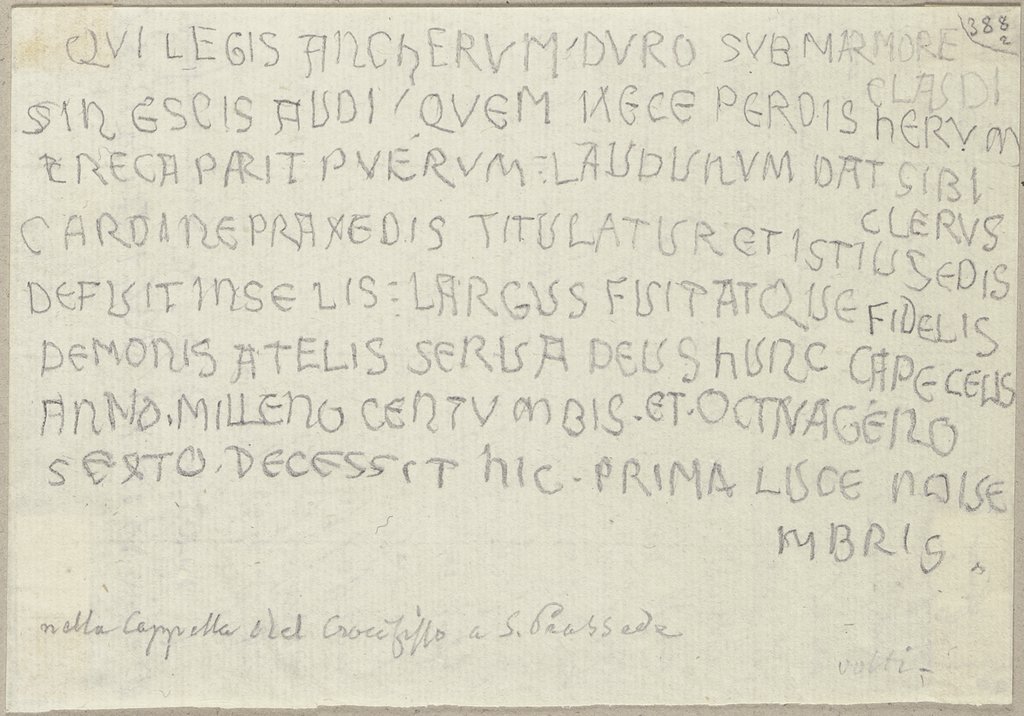 388
2
QVI LEGIS ANChERVM DVRO SVB MARMORE CLAUDI
SIN ESCIS AUDI QVEM NECE PERDIS hERVM
TRECA PARIT PVERVM : LAUDUNVM DAT SIBI CLERVS
CARDINE PRAXEDIS TITULATUR ET ISTIUS SEDIS
DEFUIT INSE LIS : LARGUS FUIT ATQUE FIDELIS
DEMONIS A TELIS SERUA DEUS hUNC CAPE CELIS
ANNO . MILLENO CENTV M BIS . ET . OCTVAGENO
SEXTO . DECESSIT hIC . PRIMA LUCE NOUE
MBRIS .
nella Cappella del Crocifisso a S. Prassede
volti -